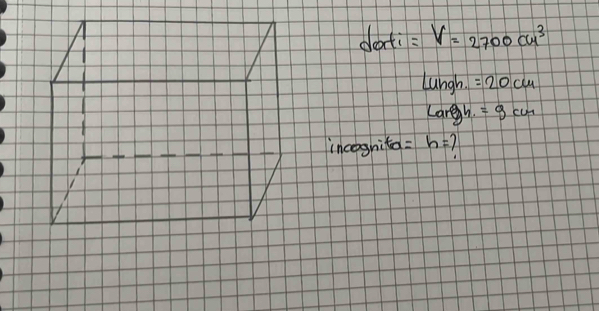 dati = V = 2700 cm³
Lungh. = 20 cm
Largh. = 9 cm
incognita = h = ?